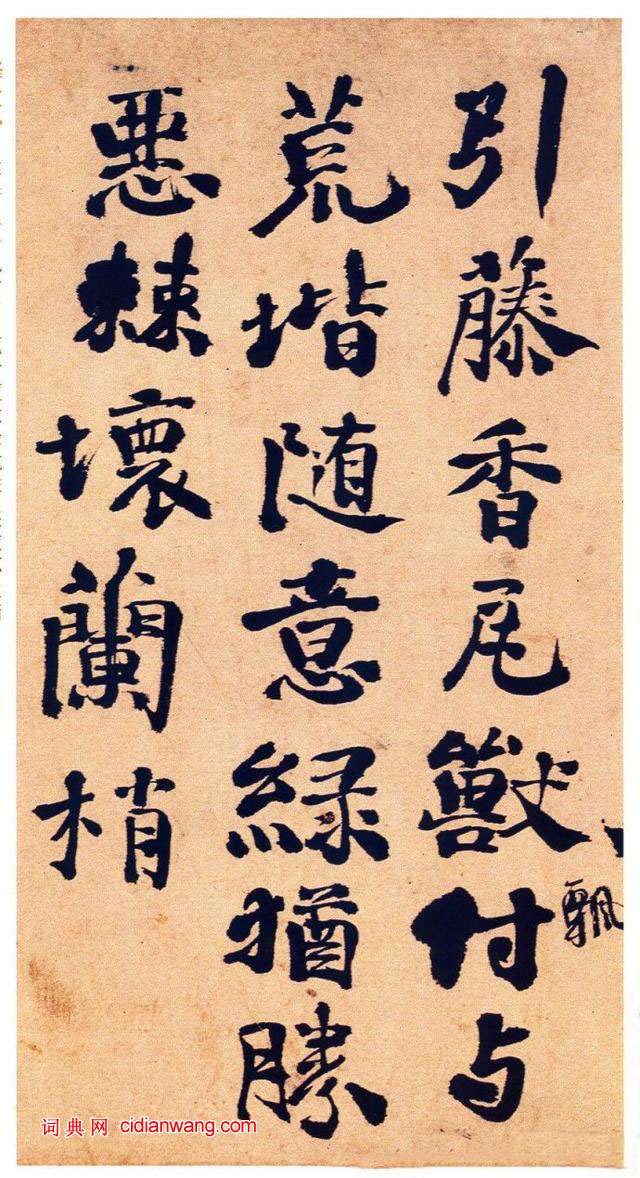 引藤香瓦獸付与
飄
荒堦随意緑猶勝
悪棘壞蘭梢
词典网 cidianwang.com